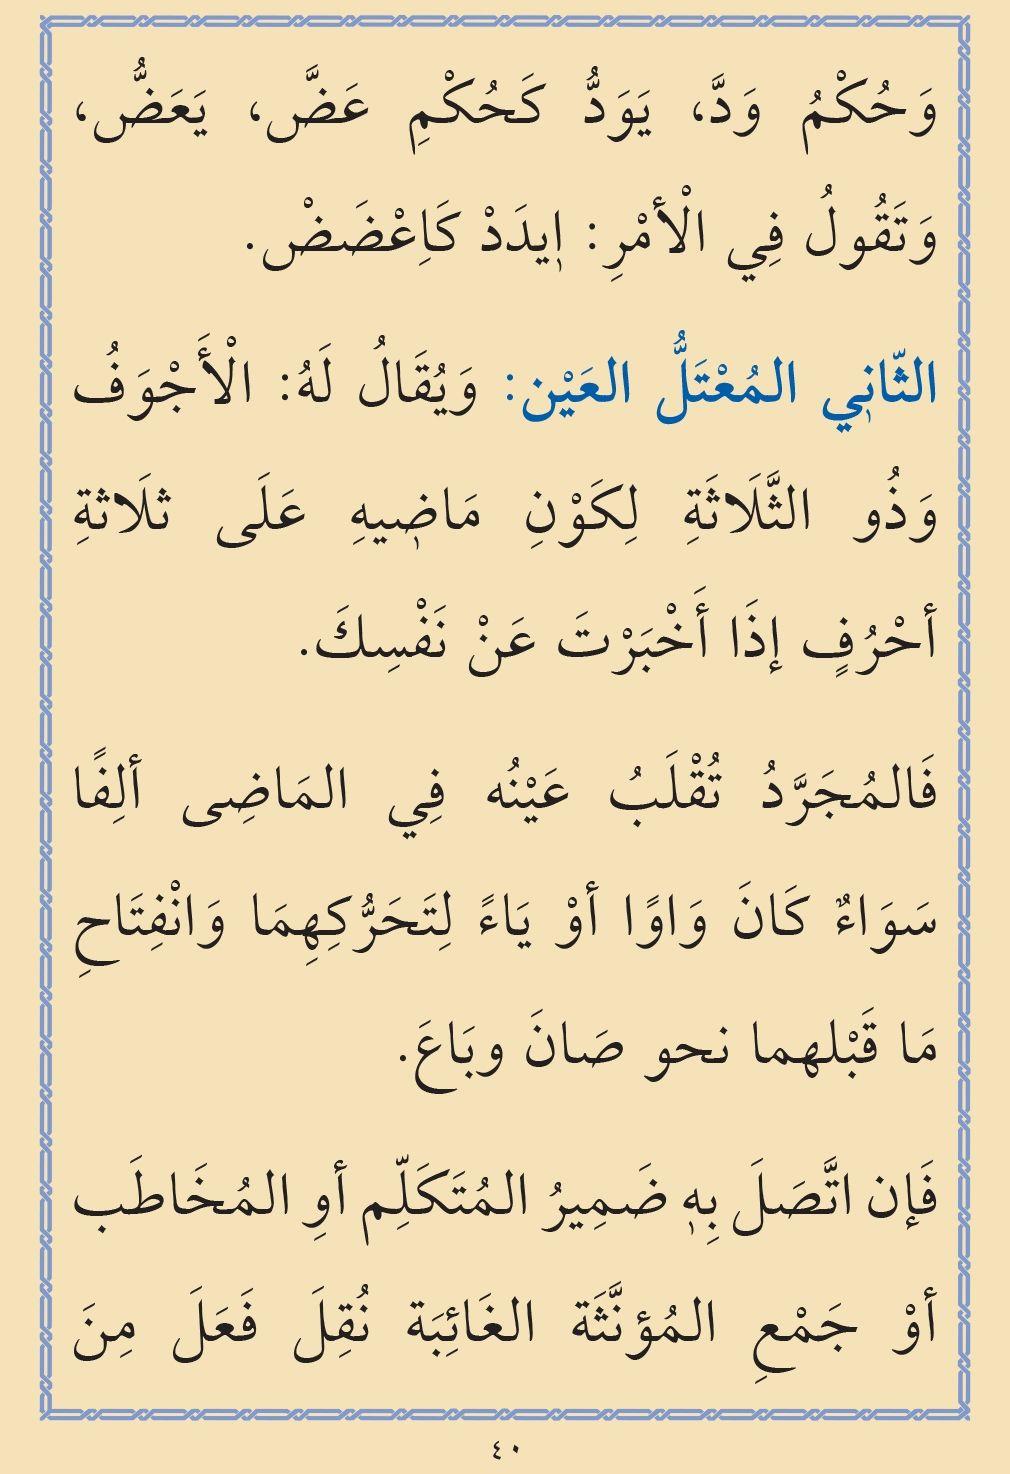 وَحُكْمُ وَدَّ، يَوَدُّ كَحُكْمِ عَضَّ، يَعَضُّ،
وَتَقُولُ فِي الْأمْرِ: اٖيدَدْ كَاِعْضَضْ.
الثّانٖي المُعْتَلُّ العَيْن: وَيُقَالُ لَهُ: الْأَجْوَفُ
وَذُو الثَّلَاثَةِ لِكَوْنِ مَاضٖيهِ عَلَى ثلَاثةِ
أحْرُفٍ إذَا أَخْبَرْتَ عَنْ نَفْسِكَ.
فَالمُجَرَّدُ تُقْلَبُ عَيْنُه فِي المَاضِى ألِفًا
سَوَاءٌ كَانَ وَاوًا أوْ يَاءً لِتَحَرُّكِهِمَا وَانْفِتَاحِ
مَا قَبْلهما نحو صَانَ وبَاعَ.
فَإن اتَّصَلَ بِهٖ ضَمِيرُ المُتَكَلِّم أوِ المُخَاطَب
أوْ جَمْعِ المُؤنَّثَة الغَائِبَة نُقِلَ فَعَلَ مِنَ
٤٠